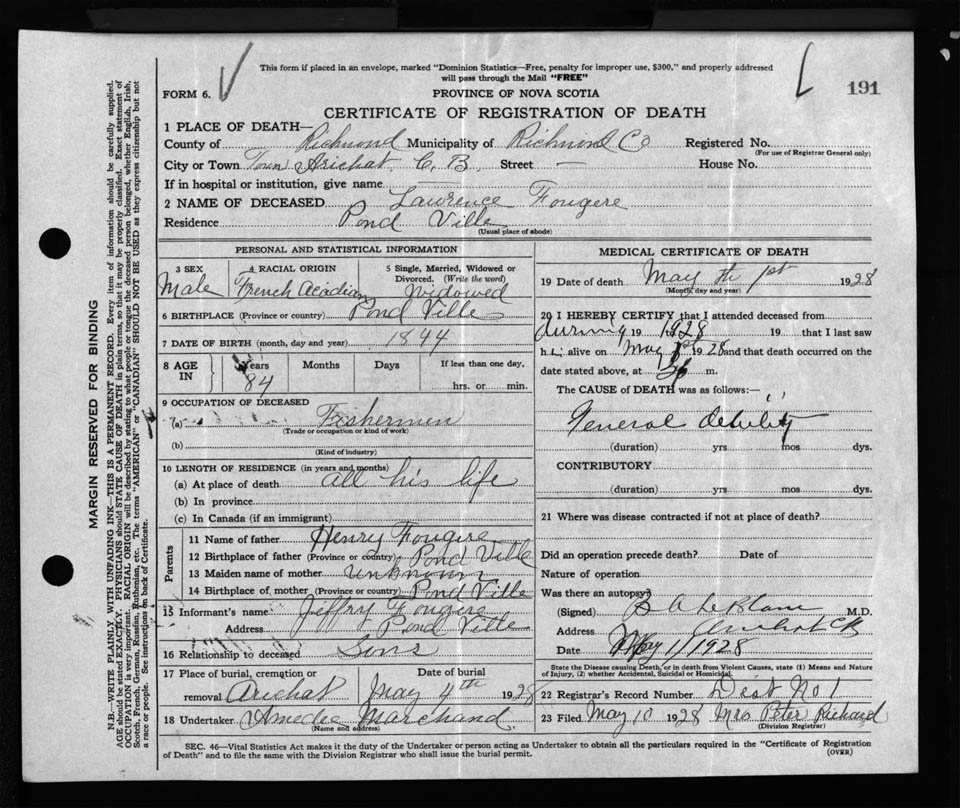 This form if placed in an envelope, marked "Dominion Statistics—Free, penalty for improper use, $300," and properly addressed
will pass through the Mail "FREE"
191
FORM 6.
PROVINCE OF NOVA SCOTIA
CERTIFICATE OF REGISTRATION OF DEATH
1 PLACE OF DEATH—
County of Richmond Municipality of Richmond Co Registered No.
(For use of Registrar General only)
City or Town Town Arichat C. B. Street — House No.
If in hospital or institution, give name
2 NAME OF DECEASED Lawrence Fougere
Residence Pond Ville
(Usual place of abode)
PERSONAL AND STATISTICAL INFORMATION
3 SEX 4 RACIAL ORIGIN 5 Single, Married, Widowed or
Divorced. (Write the word)
Male French Acadian Widowed
6 BIRTHPLACE (Province or country) Pond Ville
7 DATE OF BIRTH (month, day and year) 1844
8 AGE IN Years Months Days If less than one day,
84 hrs. or min.
9 OCCUPATION OF DECEASED
(a) Fishermen
(Trade or occupation or kind of work)
(b)
(Kind of industry)
10 LENGTH OF RESIDENCE (in years and months)
(a) At place of death all his life
(b) In province
(c) In Canada (if an immigrant)
Parents
11 Name of father Henry Fougere
12 Birthplace of father (Province or country) Pond Ville
13 Maiden name of mother Unknown
14 Birthplace of mother (Province or country) Pond Ville
15 Informant's name Jeffry Fougere
Address Pond Ville
16 Relationship to deceased Sons
17 Place of burial, cremation or Date of burial
removal Arichat May 4th 1928
18 Undertaker Amedie Marchand
(Name and address)
MEDICAL CERTIFICATE OF DEATH
19 Date of death May th 1st 1928
(Month, day and year)
20 I HEREBY CERTIFY that I attended deceased from
during 19 1928 19 that I last saw
h alive on May 1st 1928 and that death occurred on the
date stated above, at m.
The CAUSE of DEATH was as follows:—
General debility
(duration) yrs mos dys.
CONTRIBUTORY
(duration) yrs mos dys.
21 Where was disease contracted if not at place of death?
Did an operation precede death? Date of
Nature of operation
Was there an autopsy?
(Signed) B A LeBlanc M.D.
Address Arichat CB
Date May 1/1928
State the Disease causing Death, or in death from Violent Causes, state (1) Means and Nature
of Injury, (2) whether Accidental, Suicidal or Homicidal.
22 Registrar's Record Number Dist No 1
23 Filed May 10 1928 Mrs Peter Richard
(Division Registrar)
SEC. 46—Vital Statistics Act makes it the duty of the Undertaker or person acting as Undertaker to obtain all the particulars required in the "Certificate of Registration
of Death" and to file the same with the Division Registrar who shall issue the burial permit. (OVER)
MARGIN RESERVED FOR BINDING
N.B.—WRITE PLAINLY, WITH UNFADING INK—THIS IS A PERMANENT RECORD. Every item of information should be carefully supplied.
AGE should be stated EXACTLY. PHYSICIANS should STATE CAUSE OF DEATH in plain terms, so that it may be properly classified. Exact statement of
OCCUPATION is very important. RACIAL ORIGIN will be described by stating to what people or tongue the deceased person belonged, whether English, Irish,
Scotch, French, German, Russian, Ruthenian, etc. The terms "AMERICAN" or "CANADIAN" SHOULD NOT BE USED as they express citizenship but not
a race or people. See instructions on back of Certificate.